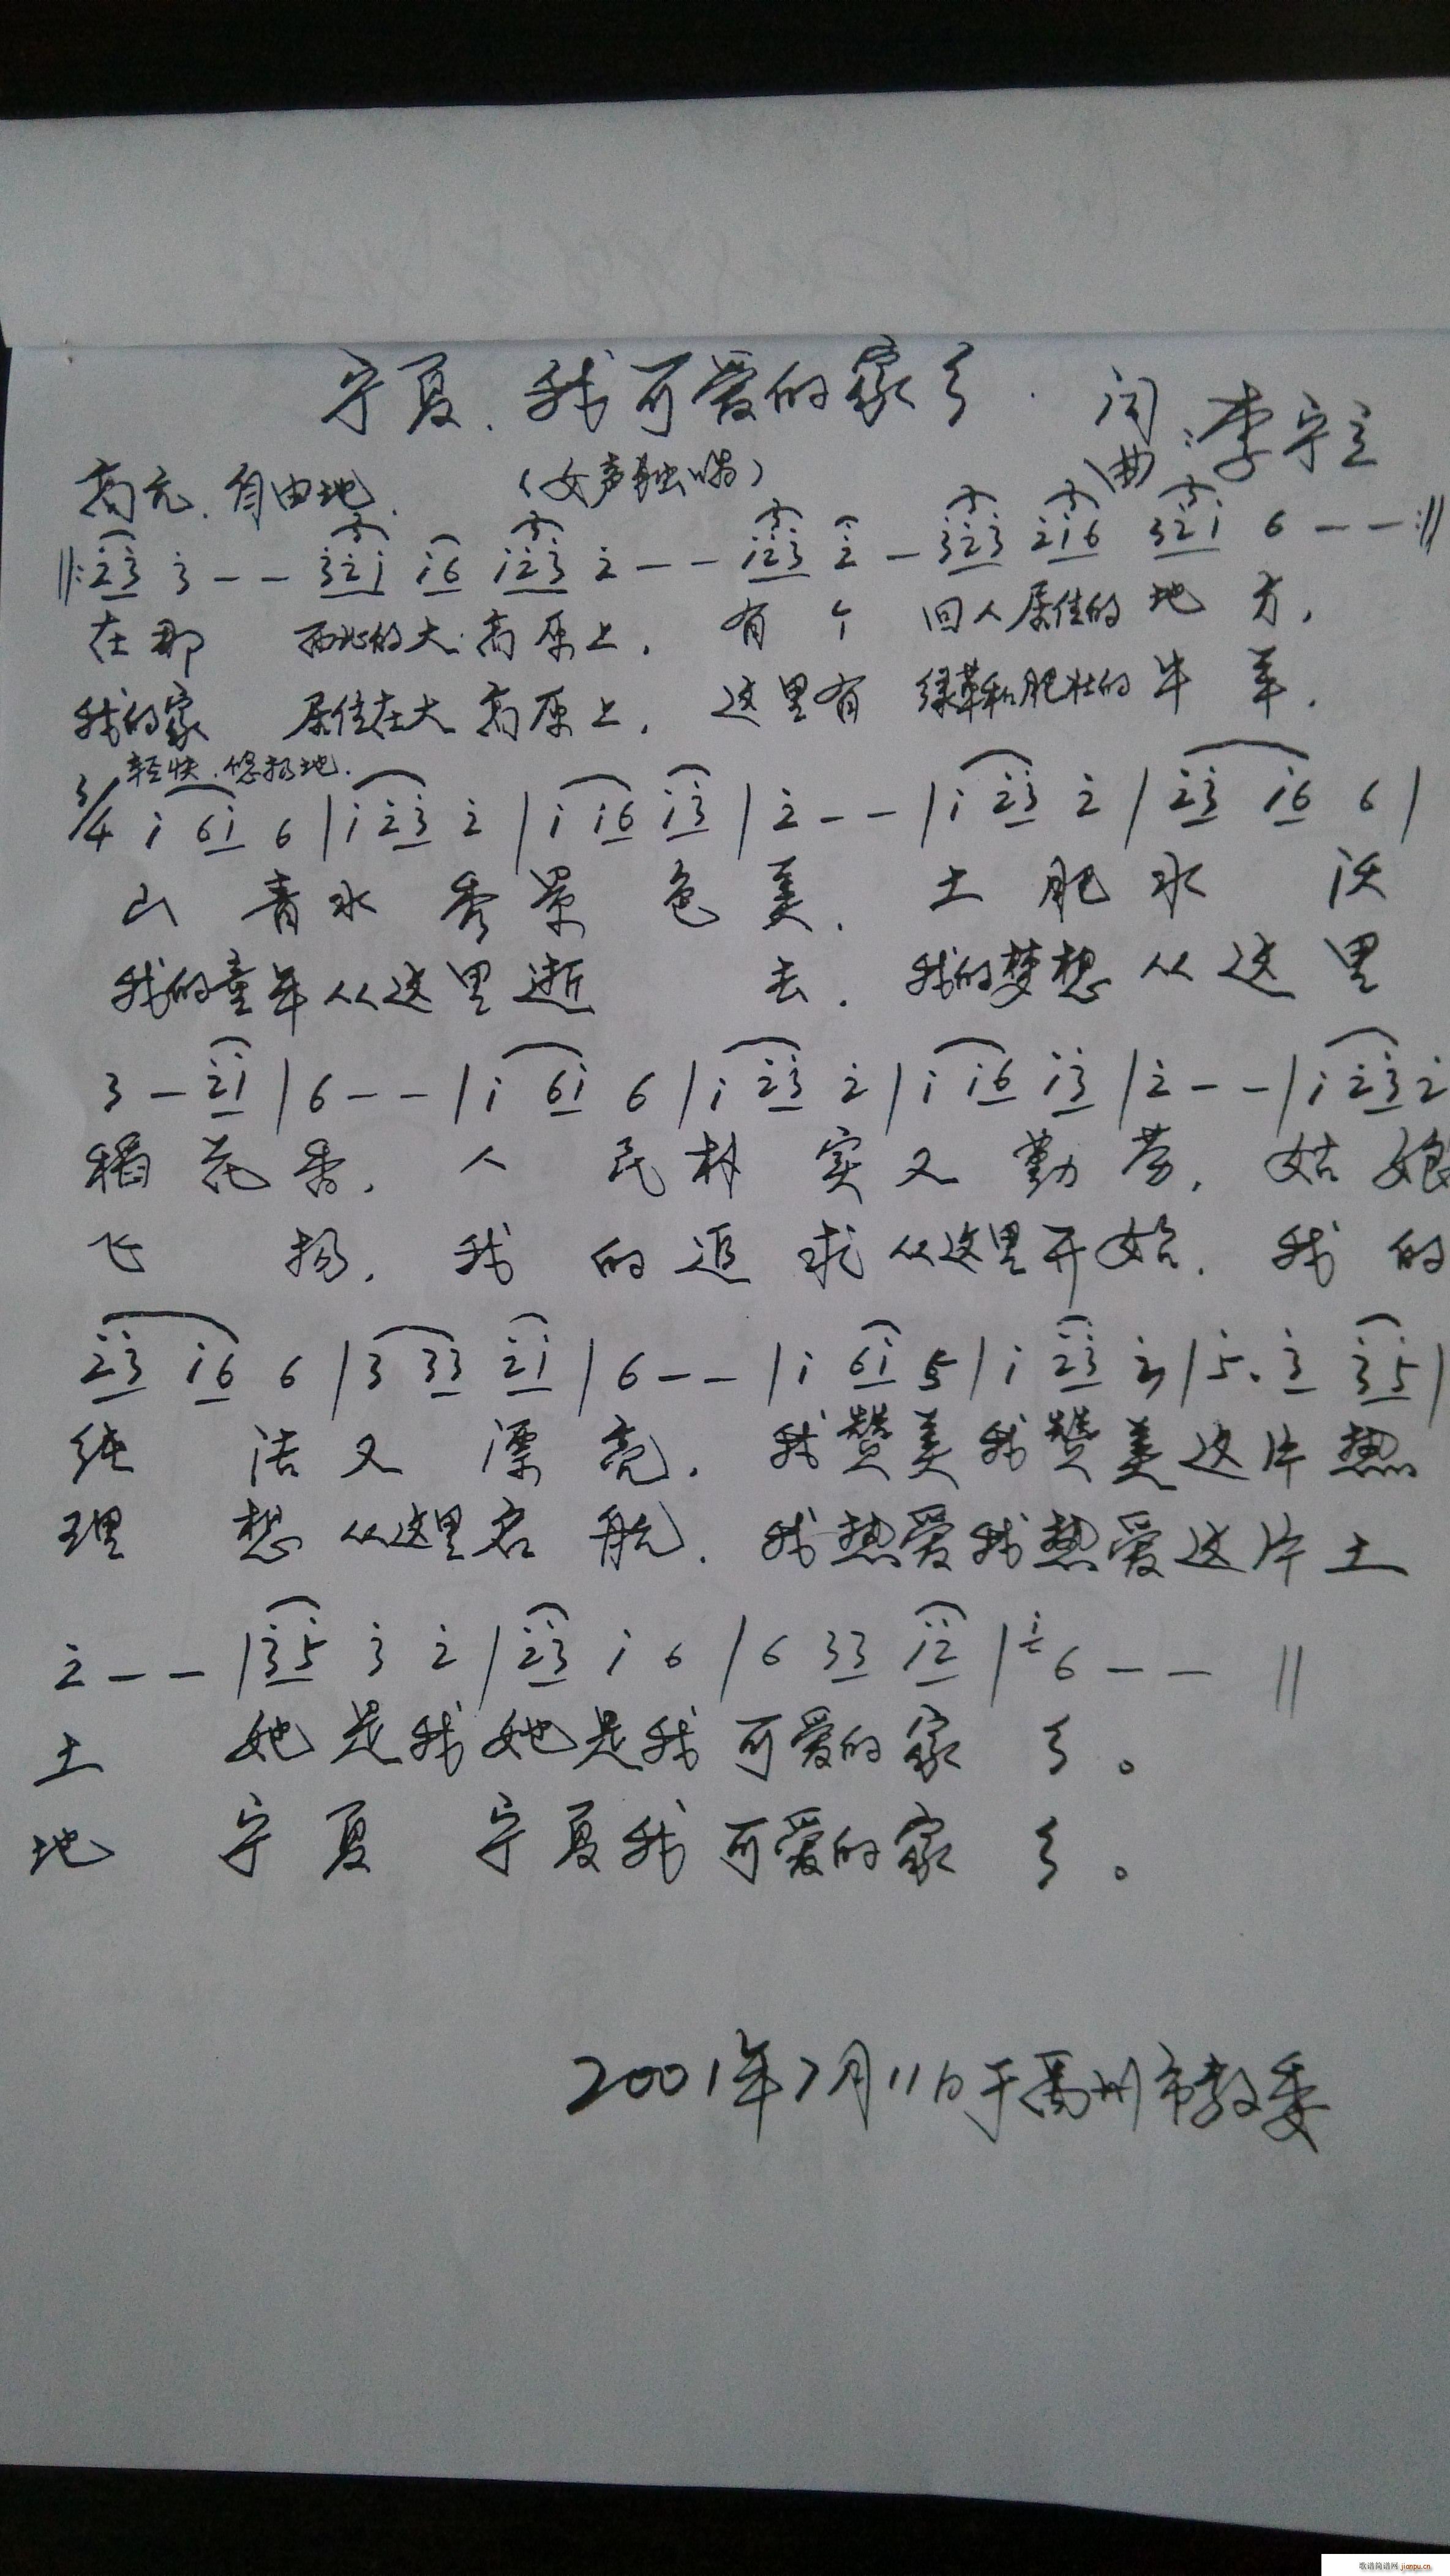 宁夏、我可爱的家乡. 词
曲:李宁立
高亢、自由地. (女声独唱)
‖: 2̇3̇ 3̇ - - 3̇2̇1̇ 1̇6 1̇2̇3̇ 2̇ - - 1̇2̇3̇ 2̇ - 3̇2̇3̇ 2̇1̇6 3̇2̇1̇ 6 - - :‖
在那 西北的大高原上, 有个 回人居住的地方,
我的家 居住在大高原上, 这里有 绿草和肥壮的牛羊.
轻快、悠扬地.
3/4 1̇ 61̇ 6 | 1̇ 2̇3̇ 2̇ | 1̇ 1̇6 1̇3̇ | 2̇ - - | 1̇ 2̇3̇ 2̇ | 2̇3̇ 1̇6 6 |
山青水秀景色美, 土肥水沃
我的童年从这里逝去, 我的梦想从这里
3 - 2̇1̇ | 6 - - | 1̇ 61̇ 6 | 1̇ 2̇3̇ 2̇ | 1̇ 1̇6 1̇3̇ | 2̇ - - | 1̇ 2̇3̇ 2̇
稻花香, 人民朴实又勤劳, 姑娘
飞扬, 我的追求从这里开始, 我的
2̇3̇ 1̇6 6 | 3 33 2̇1̇ | 6 - - | 1̇ 61̇ 5 | 1̇ 2̇3̇ 2̇ | 5̇. 3̇ 3̇5̇ |
纯洁又漂亮, 我赞美我赞美这片热
理想从这里启航, 我热爱我热爱这片土
2̇ - - | 3̇5̇ 3̇ 2̇ | 2̇3̇ 1̇ 6 | 6 33 1̇2̇ | 1̇6 - - ‖
土 她是我她是我可爱的家乡。
地 宁夏 宁夏我可爱的家乡。
2001年7月11日于禹州市教委
歌谱简谱网 jianpu.cn